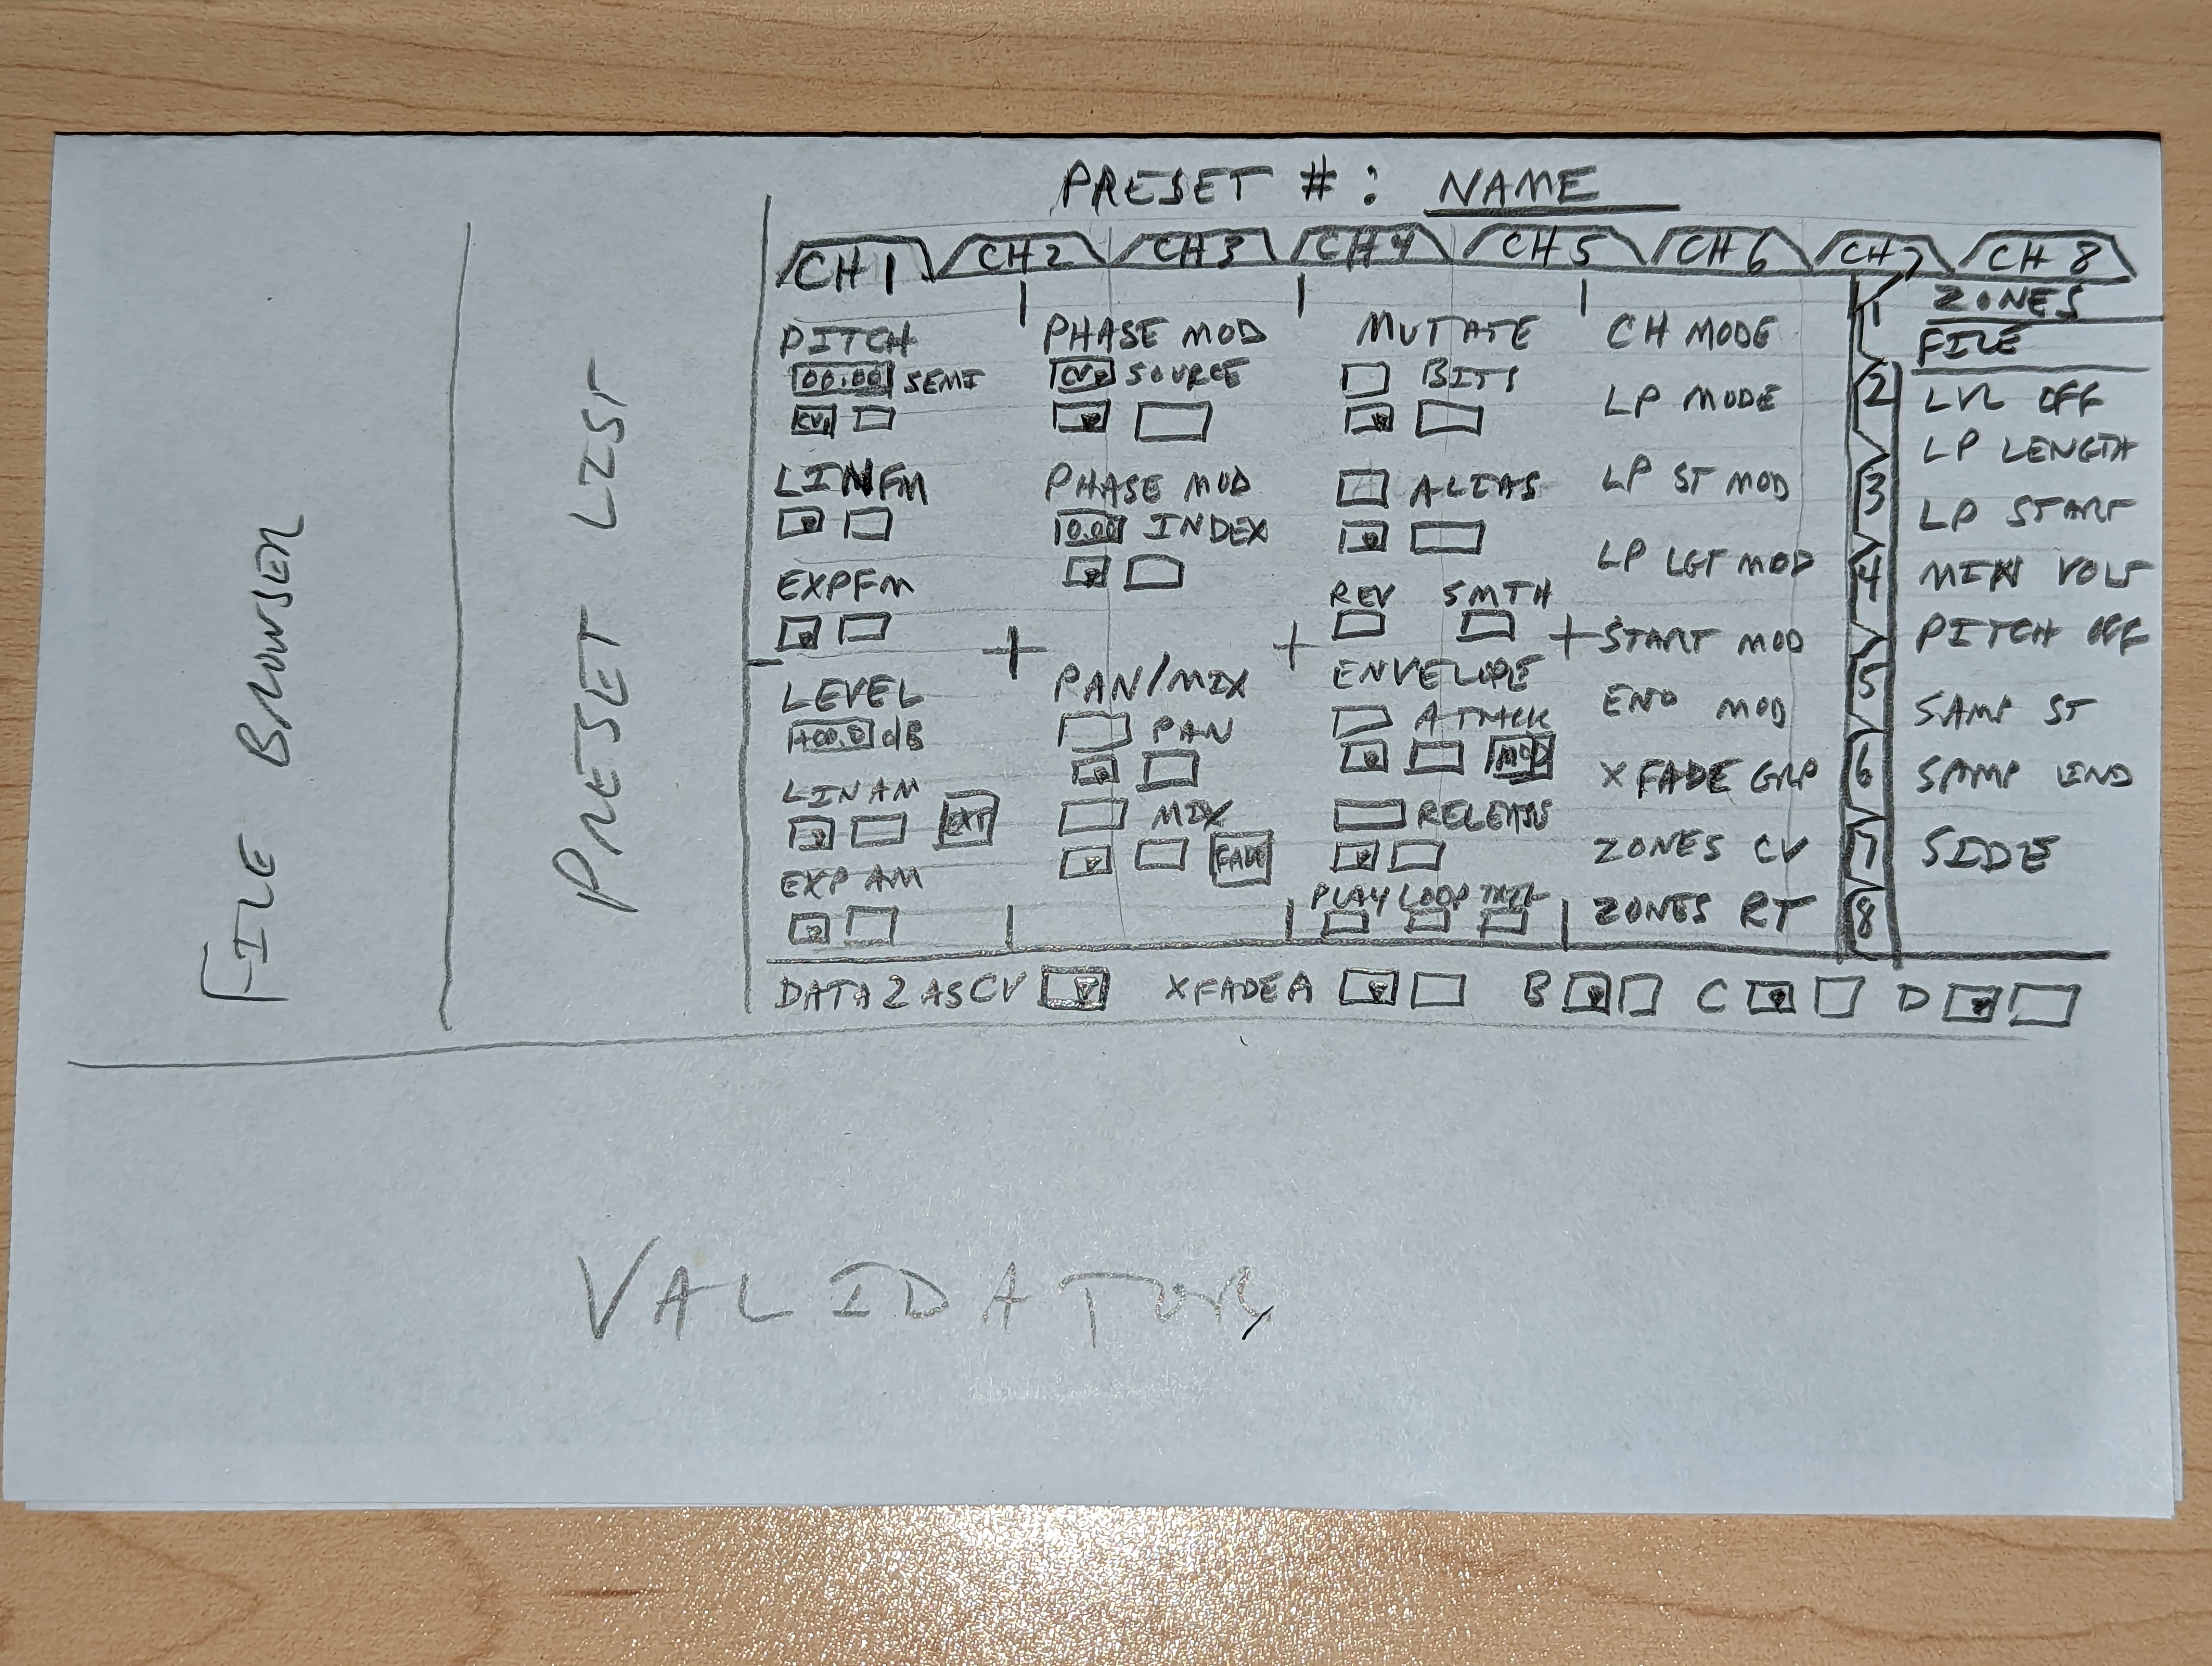 PRESET #: NAME
CH 1 CH 2 CH 3 CH 4 CH 5 CH 6 CH 7 CH 8
FILE BROWSER
PRESET LIST
PITCH
00.00 SEMI
CV
LIN FM
EXP FM
LEVEL
+00.0 dB
LIN AM
EXT
EXP AM
PHASE MOD
CV SOURCE
PHASE MOD
0.00 INDEX
PAN/MIX
PAN
MIX
FADE
MUTATE
BITS
ALIAS
REV SMTH
ENVELOPE
ATTACK
RELEASE
PLAY LOOP
CH MODE
LP MODE
LP ST MOD
LP LGT MOD
START MOD
END MOD
XFADE GRP
ZONES CV
ZONES RT
1
2
3
4
5
6
7
8
ZONES
FILE
LVL OFF
LP LENGTH
LP START
MIN VOLT
PITCH OFF
SAMP ST
SAMP END
SIDE
DATA 2 AS CV XFADE A B C D
VALIDATOR